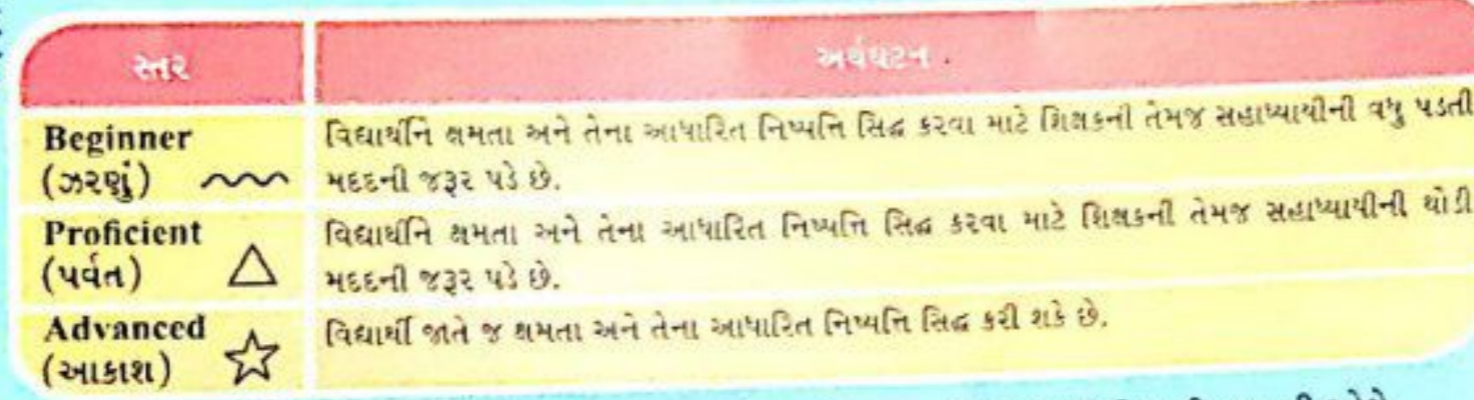 સ્તર
અર્થઘટન
Beginner
(ઝરણું)
વિદ્યાર્થીને ક્ષમતા અને તેના આધારિત નિષ્પત્તિ સિદ્ધ કરવા માટે શિક્ષકની તેમજ સહાધ્યાયીની વધુ પડતી
મદદની જરૂર પડે છે.
Proficient
(પર્વત)
વિદ્યાર્થીને ક્ષમતા અને તેના આધારિત નિષ્પત્તિ સિદ્ધ કરવા માટે શિક્ષકની તેમજ સહાધ્યાયીની થોડી
મદદની જરૂર પડે છે.
Advanced
(આકાશ)
વિદ્યાર્થી જાતે જ ક્ષમતા અને તેના આધારિત નિષ્પત્તિ સિદ્ધ કરી શકે છે.